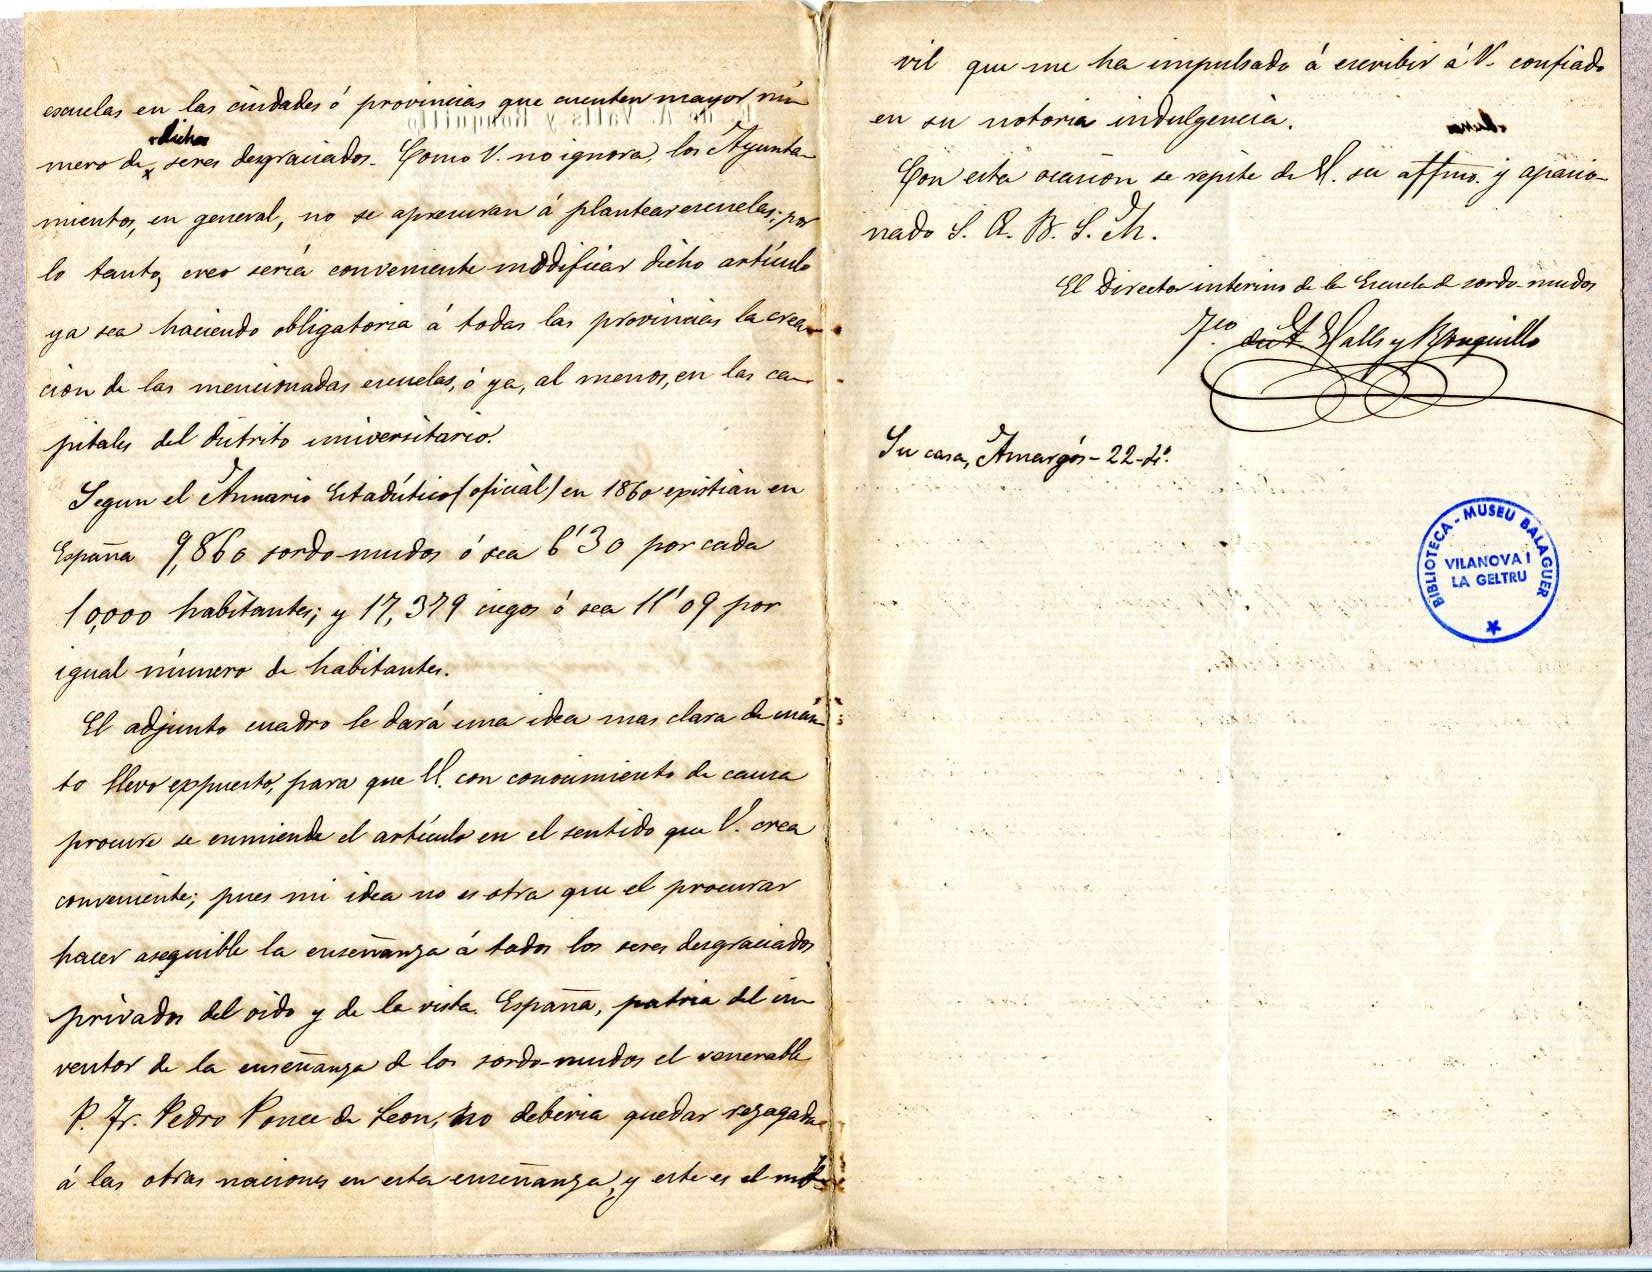 escuelas en las ciudades ó provincias que cuenten mayor nú-
dichos
mero de seres desgraciados. Como V. no ignora, los Ayunta-
mientos, en general, no se apresuran á plantear escuelas; por
lo tanto, creo sería conveniente modificar dicho artículo
ya sea haciendo obligatoria á todas las provincias la crea-
ción de las mencionadas escuelas, ó ya, al menos, en las ca-
pitales del distrito universitario.
Segun el Anuario Estadístico (oficial) en 1860 existian en
España 9,860 sordo-mudos ó sea 6'30 por cada
10,000 habitantes; y 17,379 ciegos ó sea 11'09 por
igual número de habitantes.
El adjunto cuadro le dará una idea mas clara de cuán-
to llevo expuesto, para que V. con conocimiento de causa
procure se enmiende el artículo en el sentido que V. crea
conveniente; pues mi idea no es otra que el procurar
hacer asequible la enseñanza á todos los seres desgraciados
privados del oido y de la vista. España, patria del in-
ventor de la enseñanza de los sordo-mudos el venerable
P. Fr. Pedro Ponce de Leon, no deberia quedar rezagada
á las otras naciones en esta enseñanza, y este es el mó-
vil que me ha impulsado á escribir á V. confiado
en su notoria indulgencia.
Con esta ocasion se repite de V. su affmo. y apasio-
nado S. Q. B. S. M.
El Director interino de la Escuela de sordo-mudos
Fco. de A. Valls y Ronquillo
Su casa, Amargós - 22 -
BIBLIOTECA - MUSEU BALAGUER
VILANOVA I
LA GELTRU